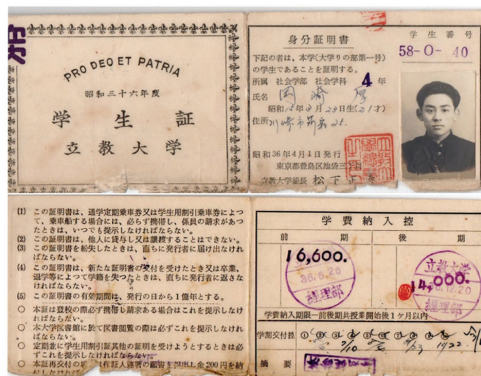 PRO DEO ET PATRIA
昭和三十六年度
学生証
立教大学
身分証明書
学生番号
58-0-40
下記の者は、本学(大学りの部第一号)
の学生であることを証明する。
所属 社会学部 社会学科 4年
氏名
昭和 年 月 日生(21才)
住所 川崎市
昭和36年4月1日発行
東京都豊島区池袋三
立教大学総長 松下正
(1) この証明書は、通学定期乗車券又は学生用割引乗車券によつ
て、乗車船する場合には、必らず携帯し、係員の請求があつ
たときは、いつでも提示しなければならない。
(2) この証明書は、他人に貸与し又は譲渡することはできない。
(3) この証明書を紛失したときは、直ちに発行者に届け出なけれ
ばならない。
(4) この証明書は、新たな証明書の交付を受けたとき又は卒業、
退学等によつて学籍を失つたときは、直ちに発行者に返さな
ければならない。
(5) この証明書の有効期間は、発行の日から1箇年とする。
○ 本証は登校の際必ず携帯し請求ある場合はこれを提示しなけ
ればならない。
○ 本大学図書館に於て図書閲覧の際は必ずこれを提示しなけれ
ばならない。
○ 定期並に学生用割引証其他の証明を受けようとするときは必
ずこれを提示しなければならない。
○ 本証再交付の
金200円を納
学費納入控
前期 後期
16,600.
36.6.20
経理部
立教大学
14,000.
経理部
学費納入期限―前後期共授業開始後1ケ月以内
学割交付数
摘要